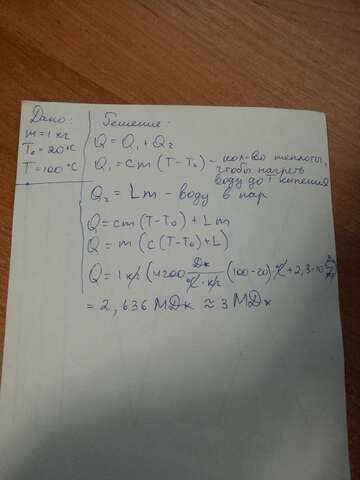 Дано:
m = 1 кг
T₀ = 20 °C
T = 100 °C
Решение:
Q = Q₁ + Q₂
Q₁ = cm (T - T₀) - кол-во теплоты,
чтобы нагреть
воду до T кипения
Q₂ = Lm - воду в пар
Q = cm (T - T₀) + Lm
Q = m (c (T - T₀) + L)
Q = 1 кг (4200 Дж/°C · кг (100 - 20) °C + 2,3 · 10
= 2,636 МДж ≈ 3 МДж